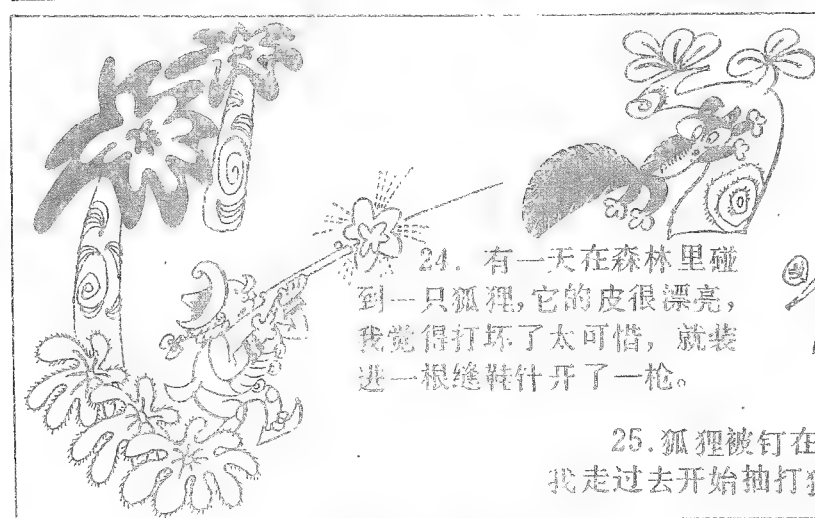 24. 有一天在森林里碰
到一只狐狸,它的皮很漂亮,
我觉得打坏了太可惜，就装
进一根缝鞋针开了一枪。
25.狐狸被钉在
我走过去开始抽打